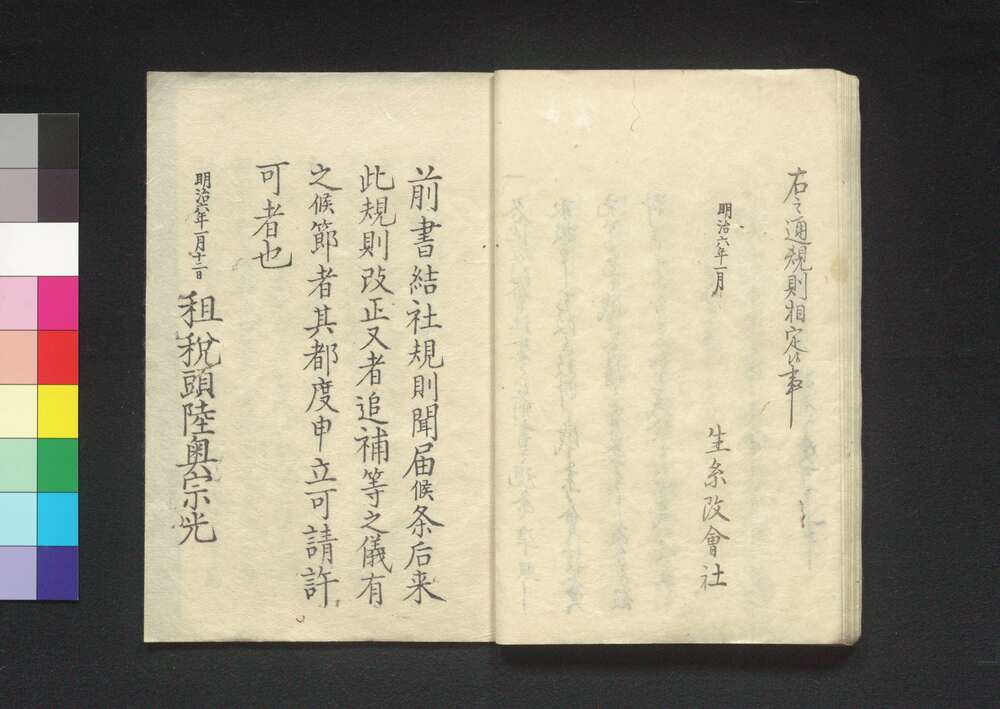 右之通規則相定候事
明治六年一月
生糸改會社
前書結社規則聞届候条后来
此規則改正又者追補等之儀有
之候節者其都度申立可請許
可者也
明治六年一月十二日
租税頭陸奥宗光